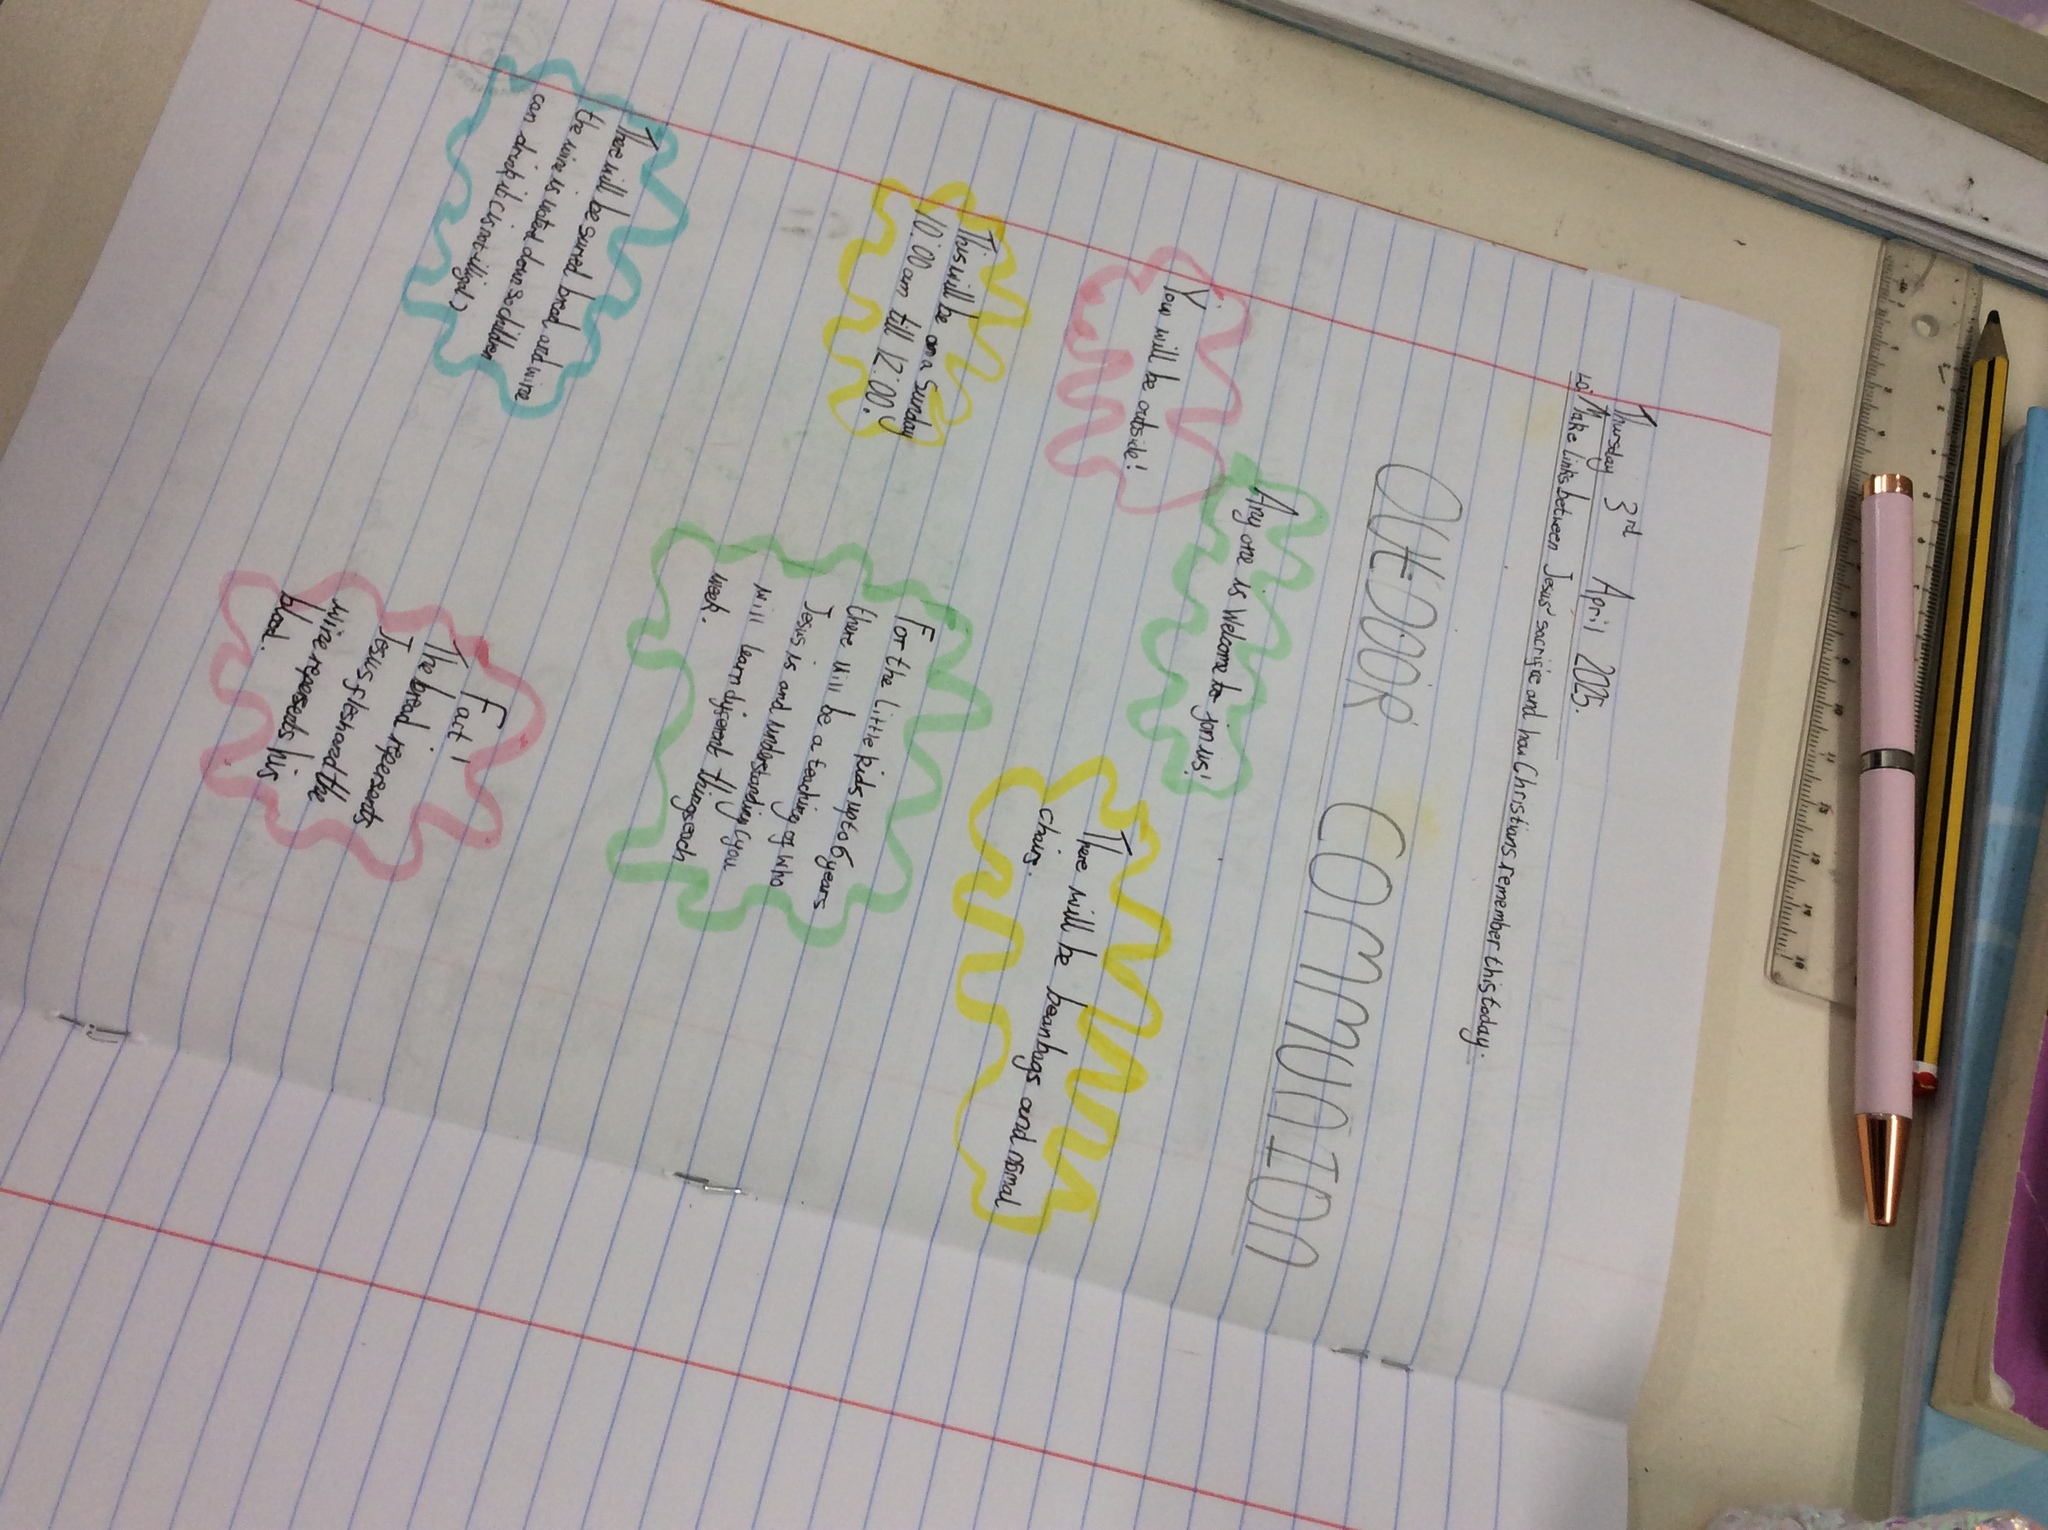 Thursday 3rd April 2025.
LO: Make links between Jesus' sacrifice and how Christians remember this today.
OUtDOOR COMMUNION
Any one is Welcome to join us!
You will be outside!
There will be beanbags and normal
chairs.
This will be on a Sunday
10:00am till 12:00.
For the Little kids up to 6 years
there will be a teaching of who
Jesus is and understanding (you
will learn different things each
week.
There will be served bread and wine
the wine is watered down so children
can drink it (is not illigal)
Fact!
The bread represents
Jesus flesh and the
wine represents his
blood.